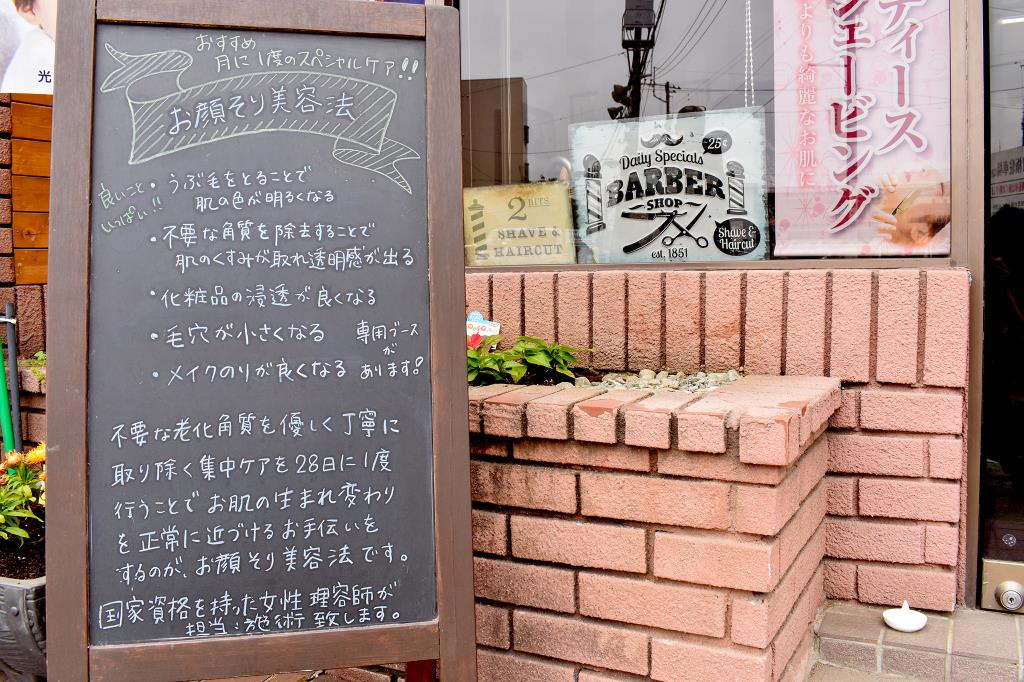 光
おすすめ
月に1度のスペシャルケア!!
お顔そり美容法
良いこと
いっぱい!!
・うぶ毛をとることで
肌の色が明るくなる
・不要な角質を除去することで
肌のくすみが取れ透明感が出る
・化粧品の浸透が良くなる
・毛穴が小さくなる
・メイクのりが良くなる
専用ブース
が
あります!
不要な老化角質を優しく丁寧に
取り除く集中ケアを28日に1度
行うことでお肌の生まれ変わり
を正常に近づけるお手伝いを
するのが、お顔そり美容法です。
国家資格を持った女性理容師が
担当:施術致します。
2 BITS
SHAVE &
HAIRCUT
25¢
Daily Specials
BARBER
SHOP
Shave &
Haircut
est. 1851
ディース
シェービング
よりも綺麗なお肌に